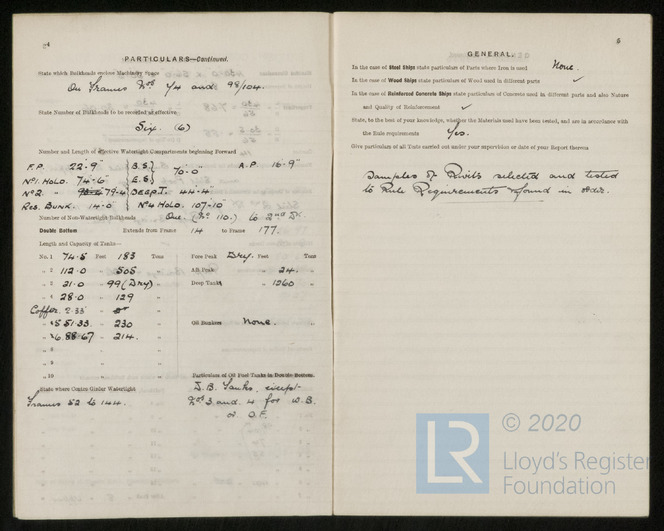 4
PARTICULARS—Continued.
State which Bulkheads enclose Machinery Space
On Frames Nos 74 and 99/104.
State Number of Bulkheads to be recorded as effective
Six. (6)
Number and Length of effective Watertight Compartments beginning Forward
F.P. 22-9" B.S. 70-0" A.P. 16-9"
No 1. HOLD. 74-6" E.S.
No 2. " 79-4 DEEP T. 44-4"
RES. BUNK. 14-0 No 4 HOLD. 107-10"
Number of Non-Watertight Bulkheads One. (No 110.) to 2nd Dk.
Double Bottom Extends from Frame 14 to Frame 177.
Length and Capacity of Tanks—
No. 1 74.5 Feet 183 Tons Fore Peak Dry. Feet Tons
" 2 112.0 " 505 Aft Peak " 24. "
" 3 21.0 " 99 (Dry) Deep Tanks " 1260 "
" 4 28.0 " 129
Coffer. 2.33
51.33 " 230 Oil Bunkers None.
88.67 " 214.
" 9
" 10 Particulars of Oil Fuel Tanks in Double Bottom.
State where Centre Girder Watertight D.B. Tanks, except
Frames 52 to 144. Nos 3 and 4 for W.B.
or O.F.
5
GENERAL.
In the case of Steel Ships state particulars of Parts where Iron is used None.
In the case of Wood Ships state particulars of Wood used in different parts ✓
In the case of Reinforced Concrete Ships state particulars of Concrete used in different parts and also Nature
and Quality of Reinforcement ✓
State, to the best of your knowledge, whether the Materials used have been tested, and are in accordance with
the Rule requirements Yes.
Give particulars of all Tests carried out under your supervision or date of your Report thereon
Samples of Rivets selected and tested
to Rule Requirements & found in order.
LR
© 2020
Lloyd's Register
Foundation